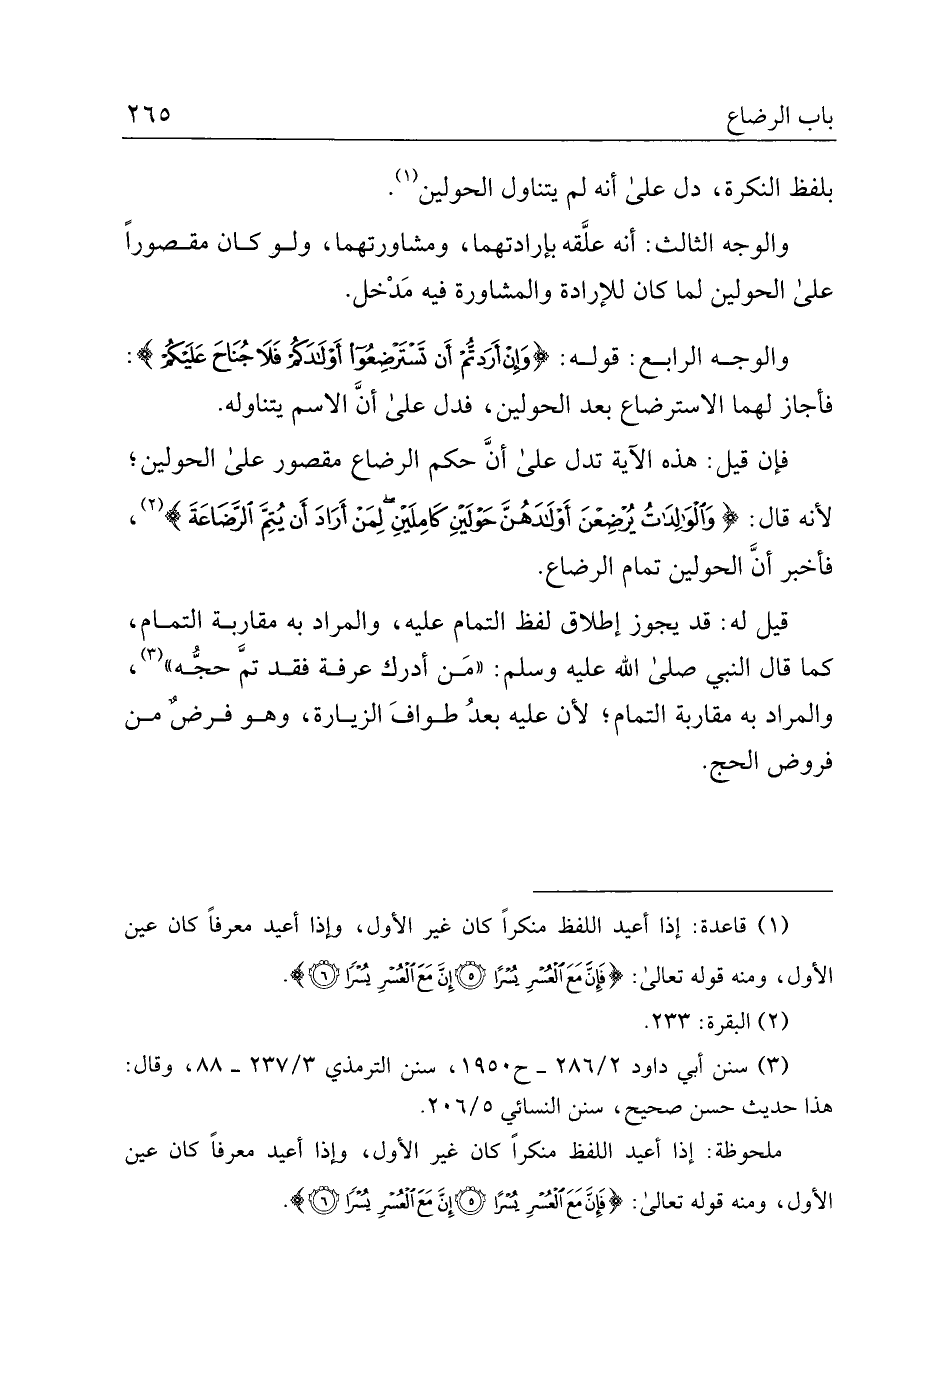 باب الرضاع ٢٦٥
بلفظ النكرة، دل علىٰ أنه لم يتناول الحولين(١).
والوجه الثالث: أنه علَّقه بإرادتهما، ومشاورتهما، ولـو كـان مقـصوراً
علىٰ الحولين لما كان للإرادة والمشاورة فيه مَدْخل.
والوجـه الرابـع: قولـه: ﴿وَإِنْ أَرَدتُّمْ أَن تَسْتَرْضِعُوٓا۟ أَوْلَٰدَكُمْ فَلَا جُنَاحَ عَلَيْكُمْ﴾:
فأجاز لهما الاسترضاع بعد الحولين، فدل علىٰ أنَّ الاسم يتناوله.
فإن قيل: هذه الآية تدل علىٰ أنَّ حكم الرضاع مقصور علىٰ الحولين؛
لأنه قال: ﴿وَٱلْوَٰلِدَٰتُ يُرْضِعْنَ أَوْلَٰدَهُنَّ حَوْلَيْنِ كَامِلَيْنِ ۖ لِمَنْ أَرَادَ أَن يُتِمَّ ٱلرَّضَاعَةَ﴾(٢)،
فأخبر أنَّ الحولين تمام الرضاع.
قيل له: قد يجوز إطلاق لفظ التمام عليه، والمراد به مقاربـة التمـام،
كما قال النبي صلىٰ الله عليه وسلم: «مَـن أدرك عرفـة فقـد تمَّ حجُّـه»(٣)،
والمراد به مقاربة التمام؛ لأن عليه بعدُ طـوافَ الزيـارة، وهـو فـرضٌ مـن
فروض الحج.
(١) قاعدة: إذا أعيد اللفظ منكراً كان غير الأول، وإذا أعيد معرفاً كان عين
الأول، ومنه قوله تعالىٰ: ﴿فَإِنَّ مَعَ ٱلْعُسْرِ يُسْرًا ٥ إِنَّ مَعَ ٱلْعُسْرِ يُسْرًا ٦﴾.
(٢) البقرة: ٢٣٣.
(٣) سنن أبي داود ٢٨٦/٢ ـ ح١٩٥٠، سنن الترمذي ٢٣٧/٣ ـ ٨٨، وقال:
هذا حديث حسن صحيح، سنن النسائي ٢٠٦/٥.
ملحوظة: إذا أعيد اللفظ منكراً كان غير الأول، وإذا أعيد معرفاً كان عين
الأول، ومنه قوله تعالىٰ: ﴿فَإِنَّ مَعَ ٱلْعُسْرِ يُسْرًا ٥ إِنَّ مَعَ ٱلْعُسْرِ يُسْرًا ٦﴾.